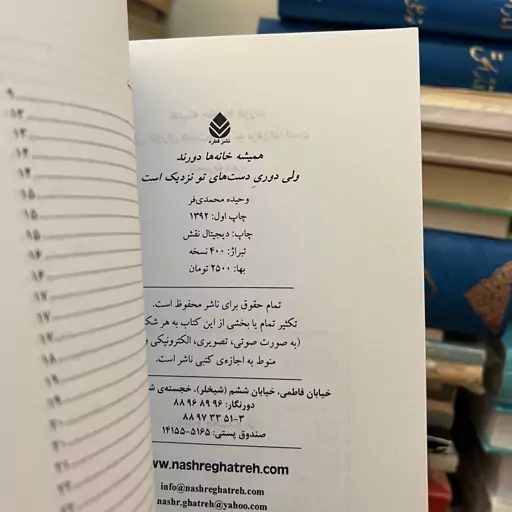 نشر قطره
همیشه خانه‌ها دورند
ولی دوریِ دست‌های تو نزدیک است
وحیده محمدی‌فر
چاپ اول: ۱۳۹۲
چاپ: دیجیتال نقش
تیراژ: ۴۰۰ نسخه
بها: ۲۵۰۰ تومان
تمام حقوق برای ناشر محفوظ است.
تکثیر تمام یا بخشی از این کتاب به هر شک
(به صورت صوتی، تصویری، الکترونیکی و
منوط به اجازه‌ی کتبی ناشر است.
خیابان فاطمی، خیابان ششم (شیخلر)، خجسته‌ی ش
دورنگار: ۹۶ ۸۹ ۹۶ ۸۸
۳-۵۱ ۳۳ ۹۷ ۸۸
صندوق پستی: ۵۱۶۵-۱۴۱۵۵
www.nashreghatreh.com
info@nashreghatreh.com
nashr.ghatreh@yahoo.com
۹
۱۲
۱۳
۱۴
۱۴
۱۵
۱۵
۱۵
۱۶
۱۶
۱۷
۱۷
۱۸